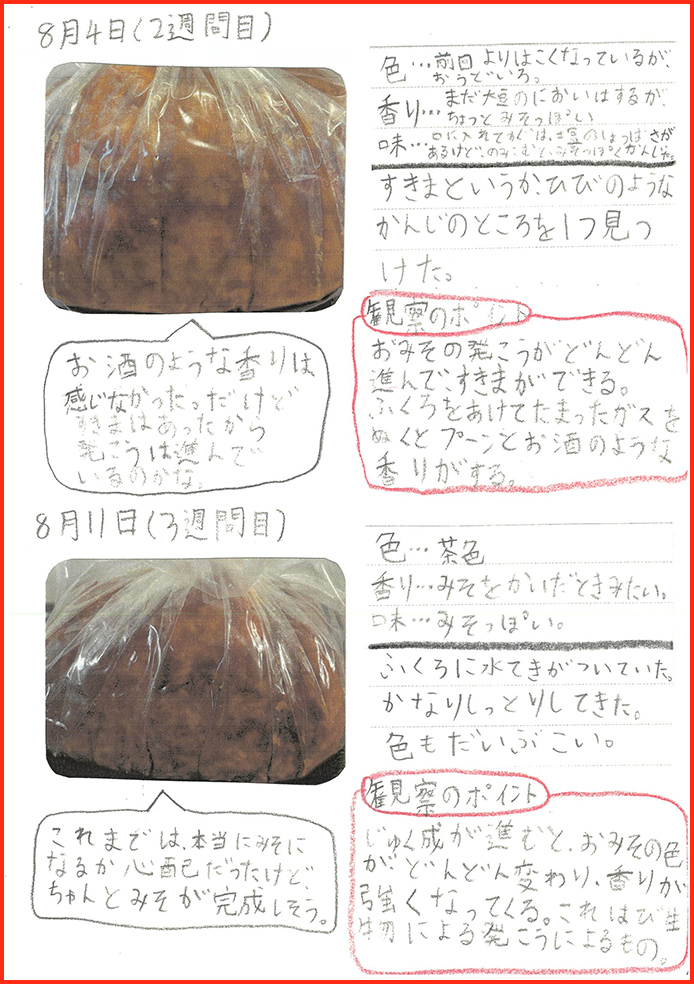 8月4日(2週間目)
色…前回よりはこくなっているが、
おうどいろ。
香り…まだ大豆のにおいはするが、
ちょっとみそっぽい
味…口に入れてすぐは、大豆のしょっぱさが
あるけど、のみこむと、みそっぽくかんじた
すきまというか、ひびのような
かんじのところを1つ見つ
けた。
お酒のような香りは
感じなかった。だけど
すきまはあったから
発こうは進んで
いるのかな。
観察のポイント
おみその発こうがどんどん
進んで、すきまができる。
ふくろをあけてたまったガスを
ぬくとプーンとお酒のような
香りがする。
8月11日(3週間目)
色…茶色
香り…みそをかいだときみたい。
味…みそっぽい。
ふくろに水てきがついていた。
かなりしっとりしてきた。
色もだいぶこい。
これまでは、本当にみそに
なるか心配だったけど、
ちゃんとみそが完成しそう。
観察のポイント
じゅく成が進むと、おみその色
がどんどん変わり、香りが
強くなってくる。これはび生
物による発こうによるもの。